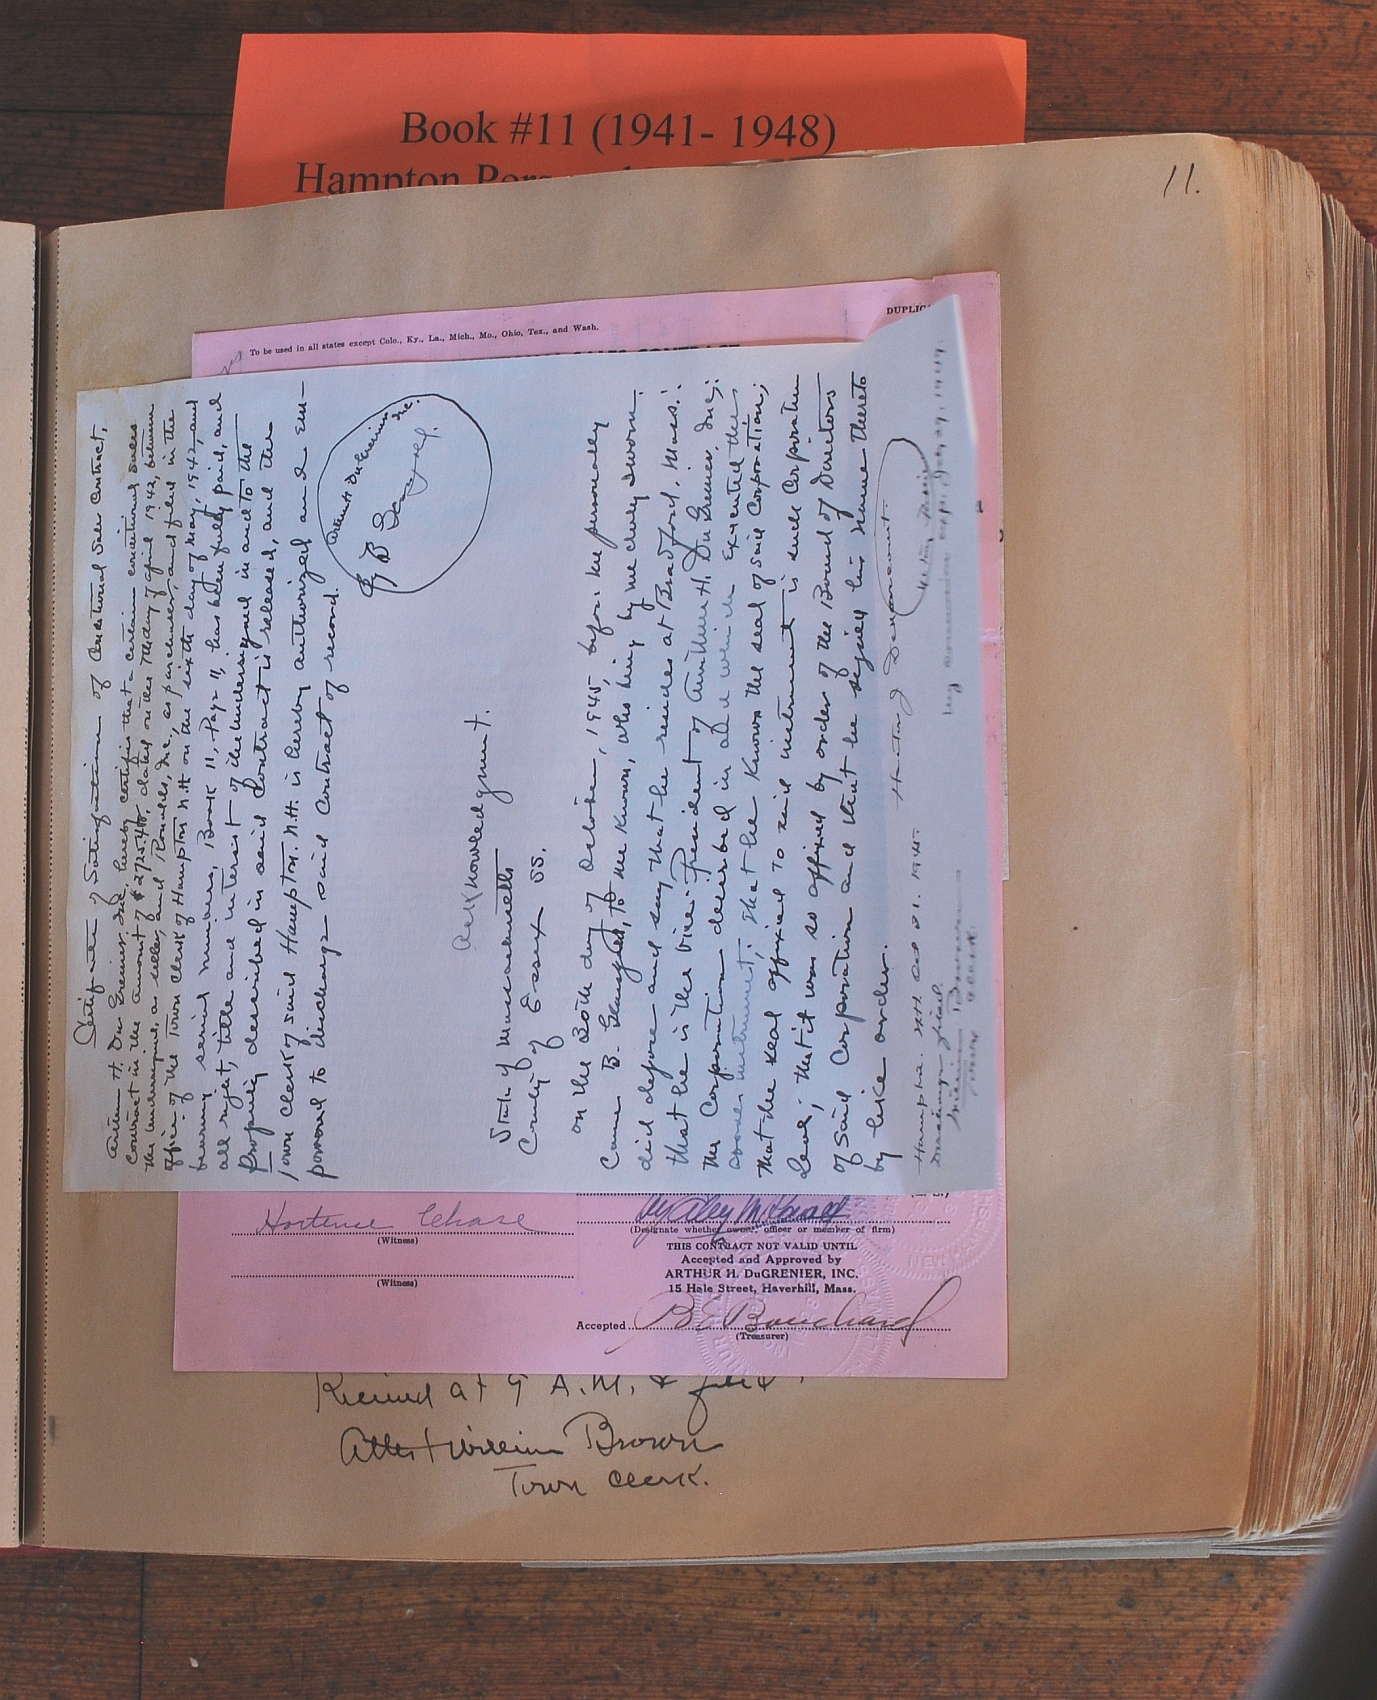 Book #11 (1941- 1948)
Hampton
11.
DUPLIC
To be used in all states except Colo., Ky., La., Mich., Mo., Ohio, Tex., and Wash.
Certificate of Satisfaction of Conditional Sales Contract,
Arthur H. Du Grenier, Inc. hereby certifies that a certain conditional sales
contract in the amount of $2725.40, dated on the day of April 1942, between
the undersigned, as seller, and Inc, as purchaser, and filed in the
office of the Town Clerk of Hampton N.H on the sixth day of May, 1942, and
bearing serial numbers, Book 11, Page 11, has been fully paid, and
all right, title and interest of the undersigned in and to the
Property described in said Contract is released, and the
Town Clerk of said Hampton. N.H. is hereby authorized and em-
powered to discharge said Contract of record.
Arthur H. Du Grenier Inc.
By B
Acknowledgment.
State of Massachusetts
County of Essex SS.
On the 30th day of October, 1945, before me personally
came B. to me known, who being by me duly sworn.
did depose and say that he resides at Bradford, Mass.:
that he is the Vice-President of Arthur H. Du Grenier, Inc;
the Corporation described in and which executed the
above instrument; that he knows the seal of said Corporation;
that the seal affixed to said instrument is such Corporate
Seal; that it was so affixed by order of the Board of Directors
of said Corporation and that he signed his name thereto
by like order.
Hampton. N.H. 1945.
Discharge filed.
William Brown
Town Clerk.
Hortense Chase
(Witness)
(Witness)
(Designate whether owner, officer or member of firm)
THIS CONTRACT NOT VALID UNTIL
Accepted and Approved by
ARTHUR H. DuGRENIER, INC.
15 Hale Street, Haverhill, Mass.
Accepted B E Bouchard
(Treasurer)
Received at 9 A.M. & filed
Attest William Brown
Town Clerk.